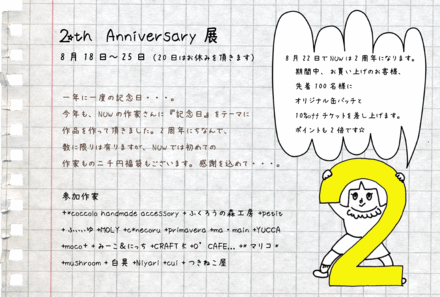 2☆th Anniversary 展
8月18日〜25日 (20日はお休みを頂きます)
一年に一度の記念日・・・。
今年も、NUWの作家さんに『記念日』をテーマに
作品を作って頂きました。2周年にちなんで、
数に限りは有りますが、NUWでは初めての
作家もの二千円福袋もございます。感謝を込めて・・・。
参加作家
+*coccolo handmade accessory + ふくろうの森工房 +petit
+ふ…ゆ +MOLY +c*necoru +primavera +ma・main +YUCCA
+moco+ +みーこ&にっち +CRAFT K +O'CAFE... +* マリコ *
+mushroom + 白晃 +Niyari +cui + つきねこ屋
8月22日でNUWは2周年になります。
期間中、お買い上げのお客様、
先着100名様に
オリジナル缶バッチと
10%offチケットを差し上げます。
ポイントも2倍です☆
2